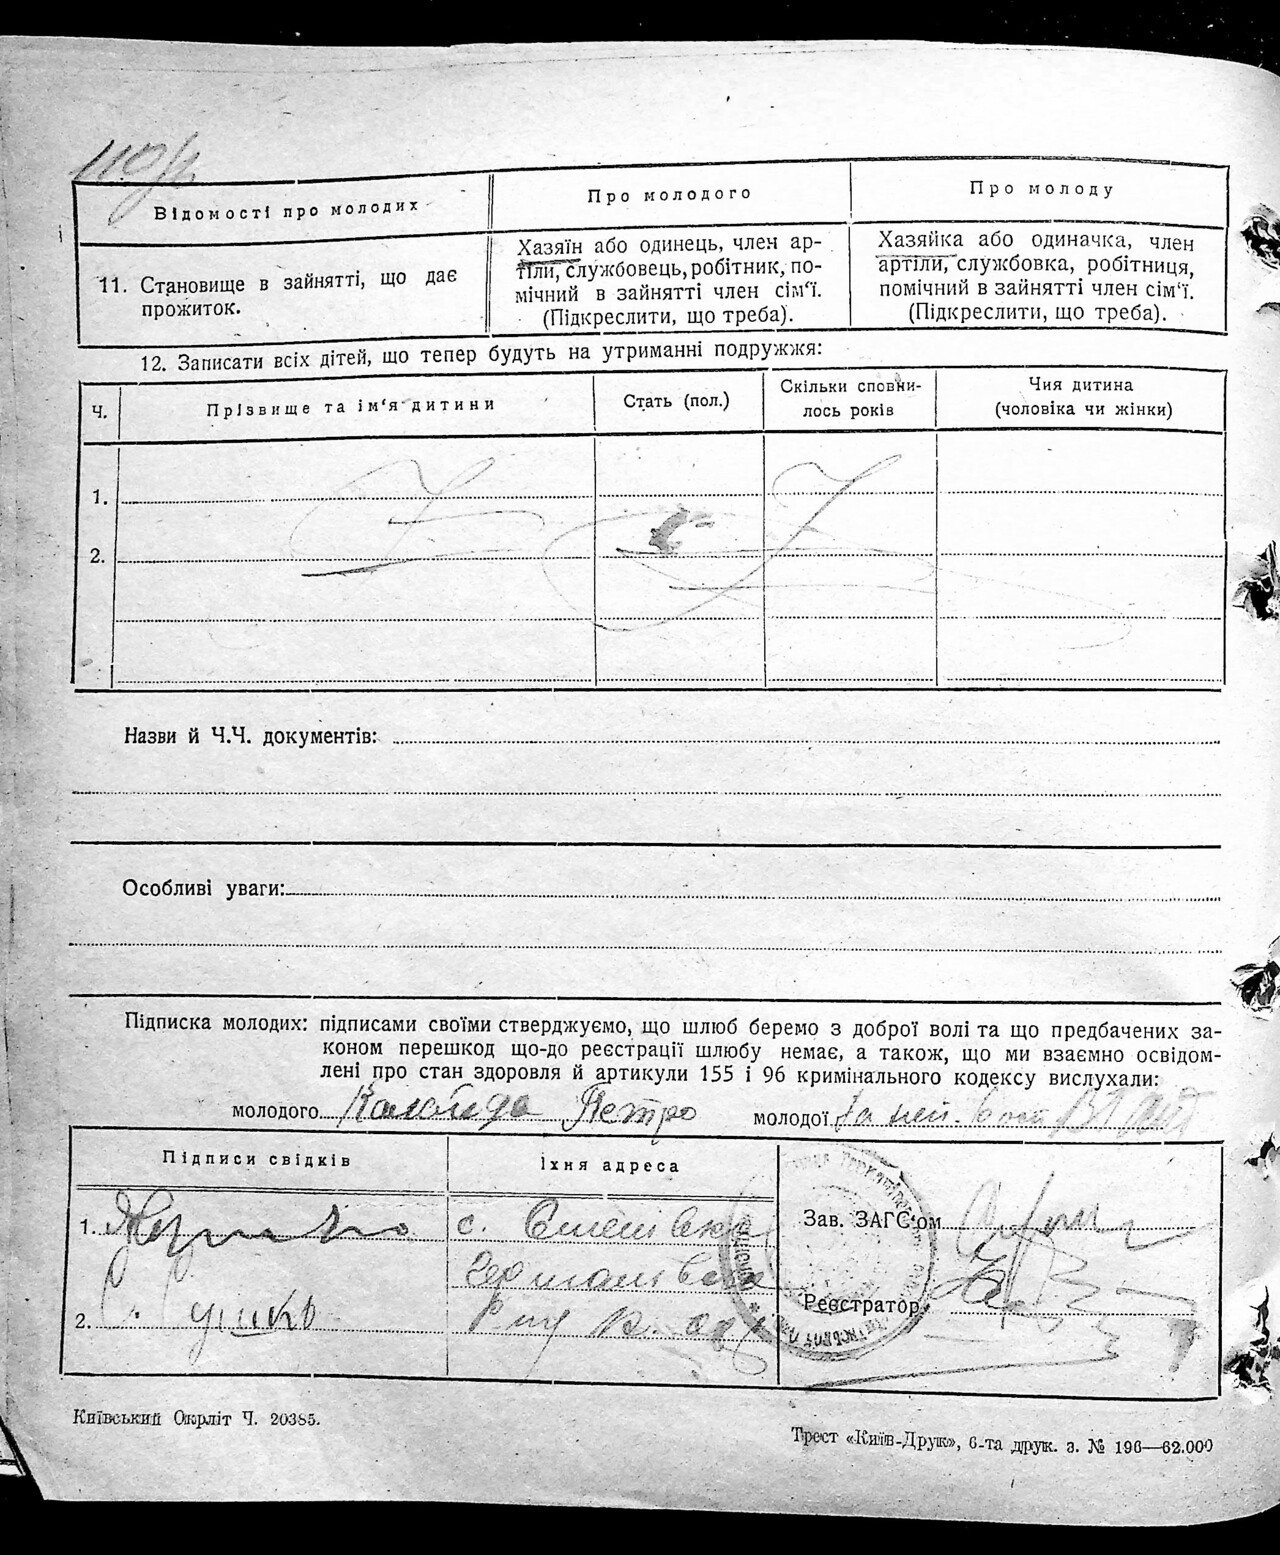 Відомості про молодих
Про молодого
Про молоду
11. Становище в зайнятті, що дає
прожиток.
Хазяїн або одинець, член ар-
тіли, службовець, робітник, по-
мічний в зайнятті член сім'ї.
(Підкреслити, що треба).
Хазяйка або одиначка, член
артіли, службовка, робітниця,
помічний в зайнятті член сім'ї.
(Підкреслити, що треба).
12. Записати всіх дітей, що тепер будуть на утриманні подружжя:
Ч.
Прізвище та ім'я дитини
Стать (пол.)
Скільки сповни-
лось років
Чия дитина
(чоловіка чи жінки)
1.
2.
Назви й Ч.Ч. документів:
Особливі уваги:
Підписка молодих: підписами своїми стверджуємо, що шлюб беремо з доброї волі та що предбачених за-
коном перешкод що-до реєстрації шлюбу немає, а також, що ми взаємно освідом-
лені про стан здоровля й артикули 155 і 96 кримінального кодексу вислухали:
молодого Петро молодої
Підписи свідків
Їхня адреса
1.
с.
2. Сушко
Зав. ЗАГС'ом
Реєстратор
Київський Окрліт Ч. 20385.
Трест «Київ-Друк», 6-та друк. з. № 196—62.000